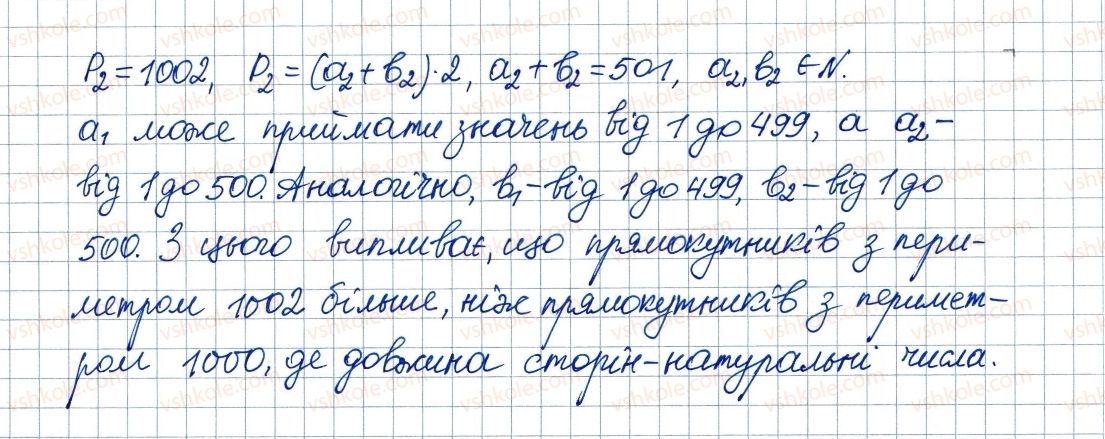 P₂ = 1002, P₂ = (a₂ + b₂) · 2, a₂ + b₂ = 501, a₂, b₂ ∈ N.
a₁ може приймати значень від 1 до 499, а a₂ –
від 1 до 500. Аналогічно, b₁ – від 1 до 499, b₂ – від 1 до
500. З цього випливає, що прямокутників з пери-
метром 1002 більше, ніж прямокутників з перимет-
ром 1000, де довжина сторін – натуральні числа.